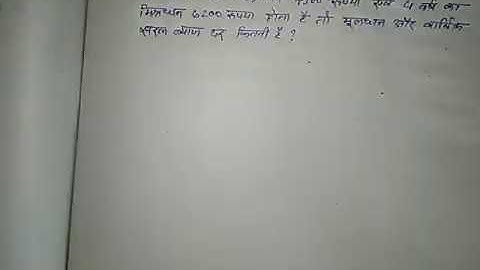 रूपया एवं 4 वर्ष का
मिश्रधन 6200 रूपया होता है तो मूलधन और वार्षिक
सरल ब्याज दर कितनी है ?